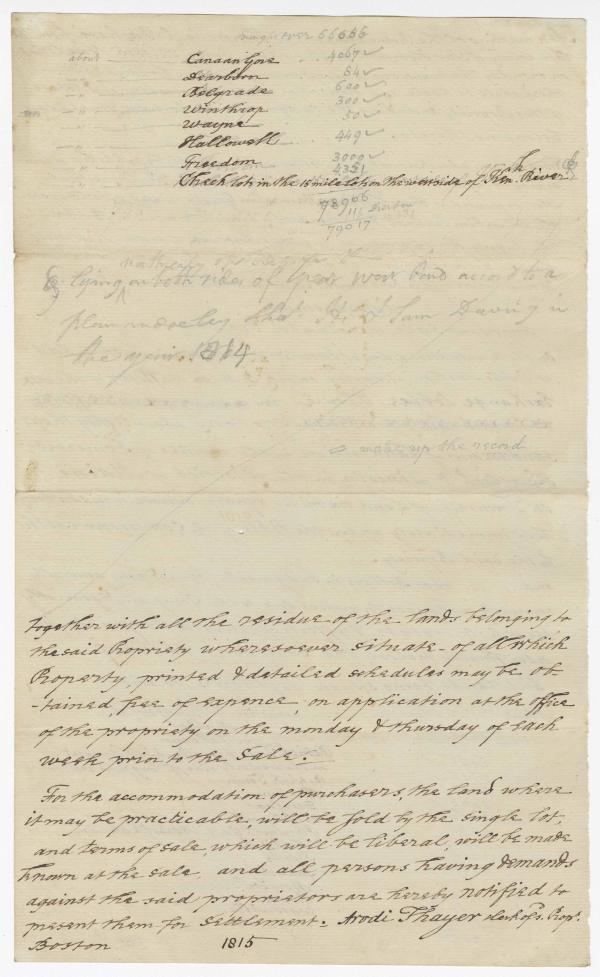 brought over 66666
about Canaan Gore 4067
Dearborn 84
Belgrade 600
Winthrop 300
Wayne 50
Hallowell 449
Freedom 3000
4351
Check lots in the 15 mile lots on the west side of Kenk. River
78966
11
79017
lying on both sides of
plan made by Chas. H. & Sam
the year 1814.
made up the record
together with all the residue of the lands belonging to
the said Propriety wheresoever situate - of all which
Property, printed & detailed schedules may be ob
-tained, free of expence, on application at the office
of the propriety on the monday & thursday of each
week prior to the Sale.
For the accommodation of purchasers, the land where
it may be practicable, will be sold by the single lot,
and terms of sale, which will be liberal, will be made
known at the sale, and all persons having demands
against the said proprietors are hereby notified to
present them for settlement. Arodi Thayer clerk of sd. Propy.
Boston 1815